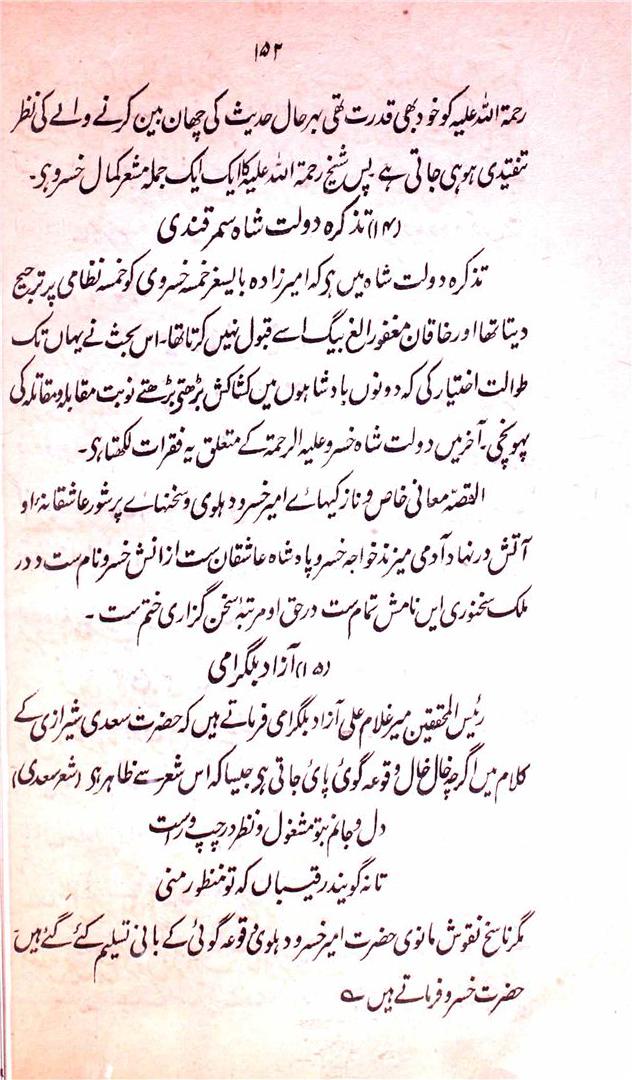 ۱۵۲
رحمۃ اللہ علیہ کو خود بھی قدرت تھی بہر حال حدیث کی چھان بین کرنے والے کی نظر
تنقیدی ہو ہی جاتی ہے پس شیخ رحمۃ اللہ علیہ کا ایک ایک جملہ مشعر کمال خسرو ہے۔
(۱۴) تذکرہ دولت شاہ سمرقندی
تذکرہ دولت شاہ میں ہے کہ امیرزادہ بالیسغر خمسہ خسروی کو خمسہ نظامی پر ترجیح
دیتا تھا اور خاقان مغفور الغ بیگ اسے قبول نہیں کرتا تھا۔ اس بحث نے یہاں تک
طوالت اختیار کی کہ دونوں بادشاہوں میں کشاکش بڑھتی بڑھتے نوبت مقابلہ و مقاتلہ کی
پہونچی۔ آخر میں دولت شاہ خسرو علیہ الرحمۃ کے متعلق یہ فقرات لکھتا ہے۔
القصہ معانی خاص و نازکیہائے امیر خسرو دہلوی و سخنہائے پر شور عاشقانۂ او
آتش در نہاد آدمی میزند خواجہ خسرو پادشاہ عاشقان ست ازانش خسرو نام ست و در
ملک سخنوری ایں نامش تمام ست در حق او مرتبۂ سخن گزاری ختم ست ۔
(۱۵) آزاد بلگرامی
رئیس المحققین میر غلام علی آزاد بلگرامی فرماتے ہیں کہ حضرت سعدی شیرازی کے
کلام میں اگرچہ خال خال وقوعہ گوئی پائی جاتی ہے جیسا کہ اس شعر سے ظاہر ہے (شعر سعدی)
دل و جانم بتو مشغول و نظر در چپ و راست
تا نہ گویند رقیباں کہ تو منظور منی
مگر ناسخ نقوش مانوی حضرت امیر خسرو دہلوی وقوعہ گوئی کے بانی تسلیم کئے گئے ہیں
حضرت خسرو فرماتے ہیں ؎